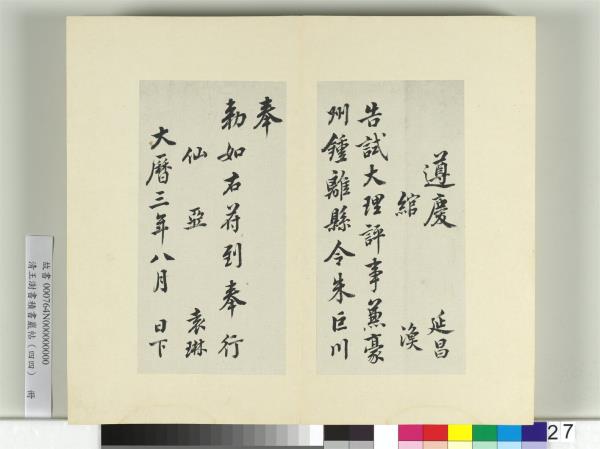 遵慶 延昌
綰 渙
告試大理評事蕪豪
州鍾離縣令朱巨川
奉
勑如右符到奉行
仙亞 袁琳
大曆三年八月 日下
故書 000764N000000000
清王澍書積書巖帖（四四） 冊
27